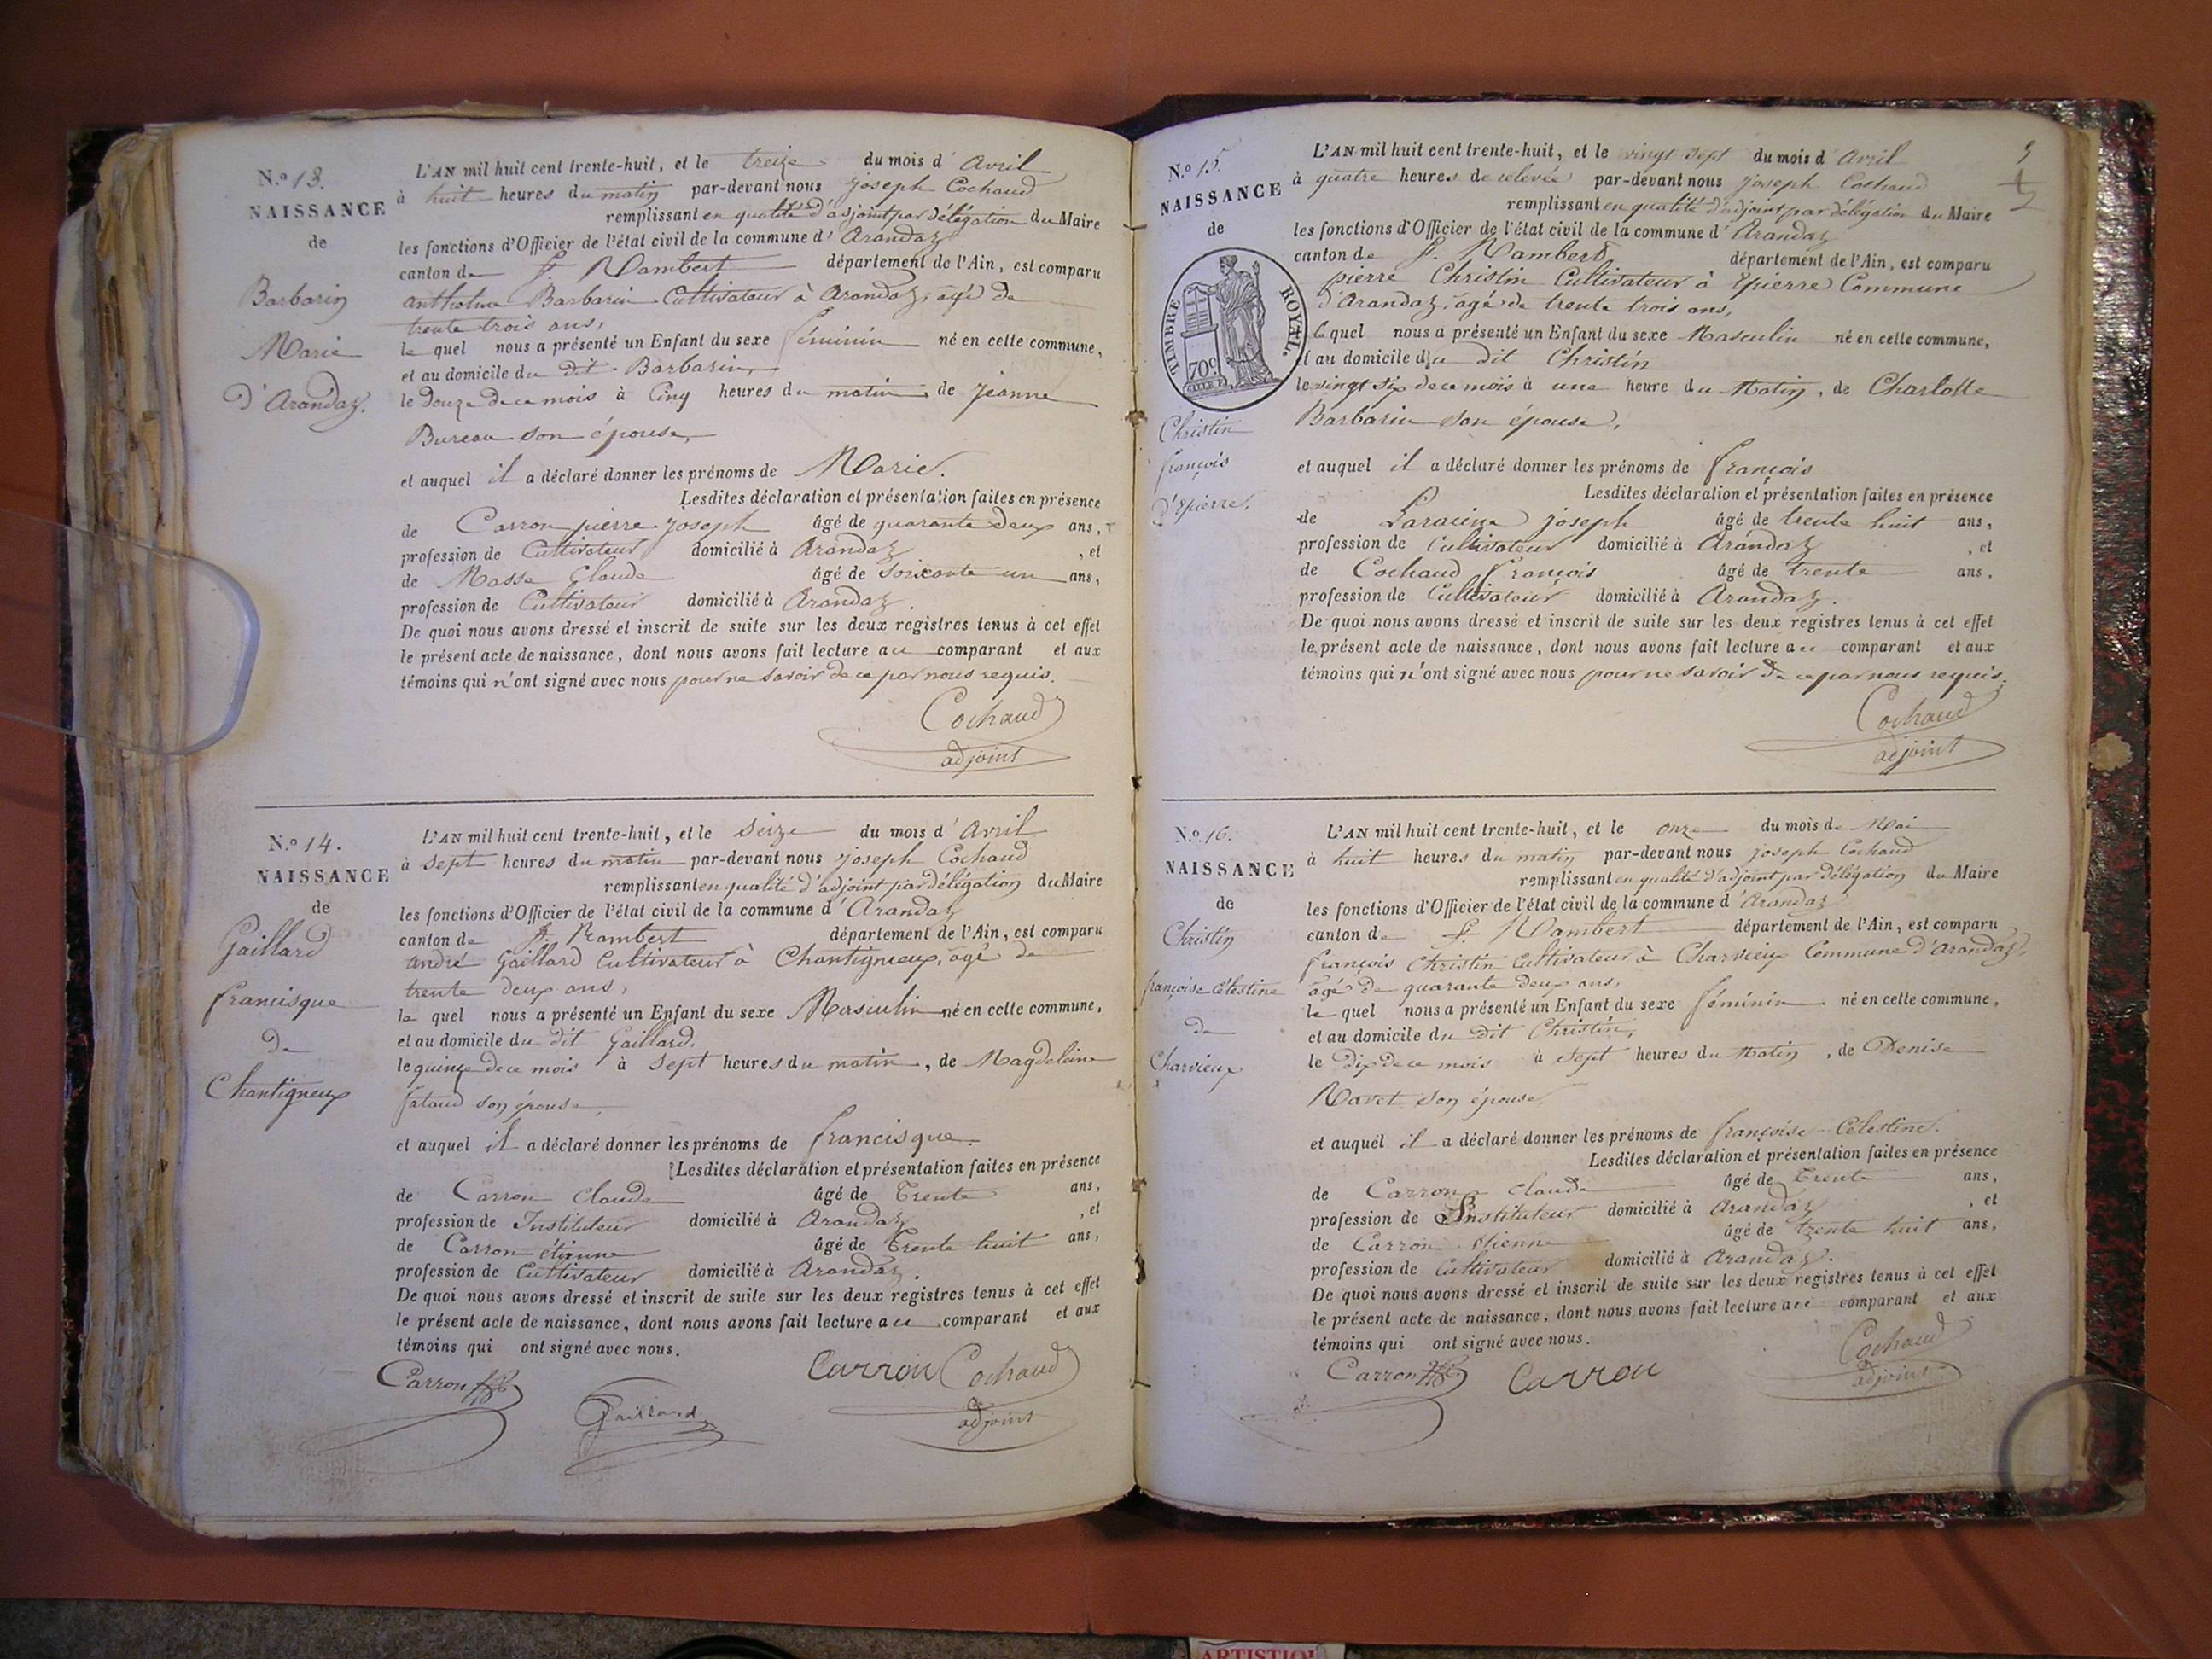 N.o 13.
NAISSANCE
de
Barbarin
Marie
d'Arandaz.
L'AN mil huit cent trente-huit, et le treize du mois d'Avril
à huit heures du matin par-devant nous joseph Cochaud
remplissant en qualité d'adjoint par délégation du Maire
les fonctions d'Officier de l'état civil de la commune d'Arandaz
canton de St. Rambert département de l'Ain, est comparu
anthelme Barbarin Cultivateur à Arandaz, âgé de
trente trois ans,
le quel nous a présenté un Enfant du sexe féminin né en cette commune,
et au domicile du dit Barbarin,
le douze de ce mois à Cinq heures du matin, de jeanne
Bureau son épouse,
et auquel il a déclaré donner les prénoms de Marie.
Lesdites déclaration et présentation faites en présence
de Carron pierre joseph âgé de quarante deux ans,
profession de Cultivateur domicilié à Arandaz, et
de Masse Claude âgé de soixante un ans,
profession de Cultivateur domicilié à Arandaz.
De quoi nous avons dressé et inscrit de suite sur les deux registres tenus à cet effet
le présent acte de naissance, dont nous avons fait lecture au comparant et aux
témoins qui n'ont signé avec nous pour ne savoir de ce par nous requis.
Cochaud
adjoint
N.o 14.
NAISSANCE
de
Gaillard
francisque
de
Chantigneux
L'AN mil huit cent trente-huit, et le seize du mois d'Avril
à sept heures du matin par-devant nous joseph Cochaud
remplissant en qualité d'adjoint par délégation du Maire
les fonctions d'Officier de l'état civil de la commune d'Arandaz
canton de St. Rambert département de l'Ain, est comparu
andré Gaillard Cultivateur à Chantigneux, âgé de
trente deux ans,
le quel nous a présenté un Enfant du sexe Masculin né en cette commune,
et au domicile du dit Gaillard.
le quinze de ce mois à sept heures du matin, de Magdeleine
fataud son épouse,
et auquel il a déclaré donner les prénoms de francisque.
Lesdites déclaration et présentation faites en présence
de Carron Claude âgé de Trente ans,
profession de Instituteur domicilié à Arandaz, et
de Carron étienne âgé de Trente huit ans,
profession de Cultivateur domicilié à Arandaz.
De quoi nous avons dressé et inscrit de suite sur les deux registres tenus à cet effet
le présent acte de naissance, dont nous avons fait lecture au comparant et aux
témoins qui ont signé avec nous.
Carron Carron Cochaud
Gaillard adjoint
N.o 15.
NAISSANCE
de
TIMBRE ROYAL
70c
Christin
françois
d'Epierre.
L'AN mil huit cent trente-huit, et le vingt sept du mois d'Avril
à quatre heures de relevée par-devant nous joseph Cochaud
remplissant en qualité d'adjoint par délégation du Maire
les fonctions d'Officier de l'état civil de la commune d'Arandaz
canton de St. Rambert département de l'Ain, est comparu
pierre Christin Cultivateur à Epierre Commune
d'Arandaz, âgé de trente trois ans,
le quel nous a présenté un Enfant du sexe Masculin né en cette commune,
et au domicile du dit Christin
le vingt six de ce mois à une heure du Matin, de Charlotte
Barbarin son épouse,
et auquel il a déclaré donner les prénoms de françois
Lesdites déclaration et présentation faites en présence
de Laracine joseph âgé de trente huit ans,
profession de Cultivateur domicilié à Arandaz, et
de Cochaud françois âgé de trente ans,
profession de Cultivateur domicilié à Arandaz.
De quoi nous avons dressé et inscrit de suite sur les deux registres tenus à cet effet
le présent acte de naissance, dont nous avons fait lecture au comparant et aux
témoins qui n'ont signé avec nous pour ne savoir de ce par nous requis.
Cochaud
adjoint
N.o 16.
NAISSANCE
de
Christin
françoise Célestine
de
Charvieux
L'AN mil huit cent trente-huit, et le onze du mois de Mai
à huit heures du matin par-devant nous joseph Cochaud
remplissant en qualité d'adjoint par délégation du Maire
les fonctions d'Officier de l'état civil de la commune d'Arandaz
canton de St. Rambert département de l'Ain, est comparu
françois Christin Cultivateur à Charvieux Commune d'Arandaz,
âgé de quarante deux ans,
le quel nous a présenté un Enfant du sexe féminin né en cette commune,
et au domicile du dit Christin,
le dix de ce mois à sept heures du Matin, de Denise
Ravet son épouse,
et auquel il a déclaré donner les prénoms de françoise Célestine.
Lesdites déclaration et présentation faites en présence
de Carron Claude âgé de Trente ans,
profession de Instituteur domicilié à Arandaz, et
de Carron étienne âgé de trente huit ans,
profession de Cultivateur domicilié à Arandaz.
De quoi nous avons dressé et inscrit de suite sur les deux registres tenus à cet effet
le présent acte de naissance, dont nous avons fait lecture au comparant et aux
témoins qui ont signé avec nous.
Carron Carron Cochaud
adjoint